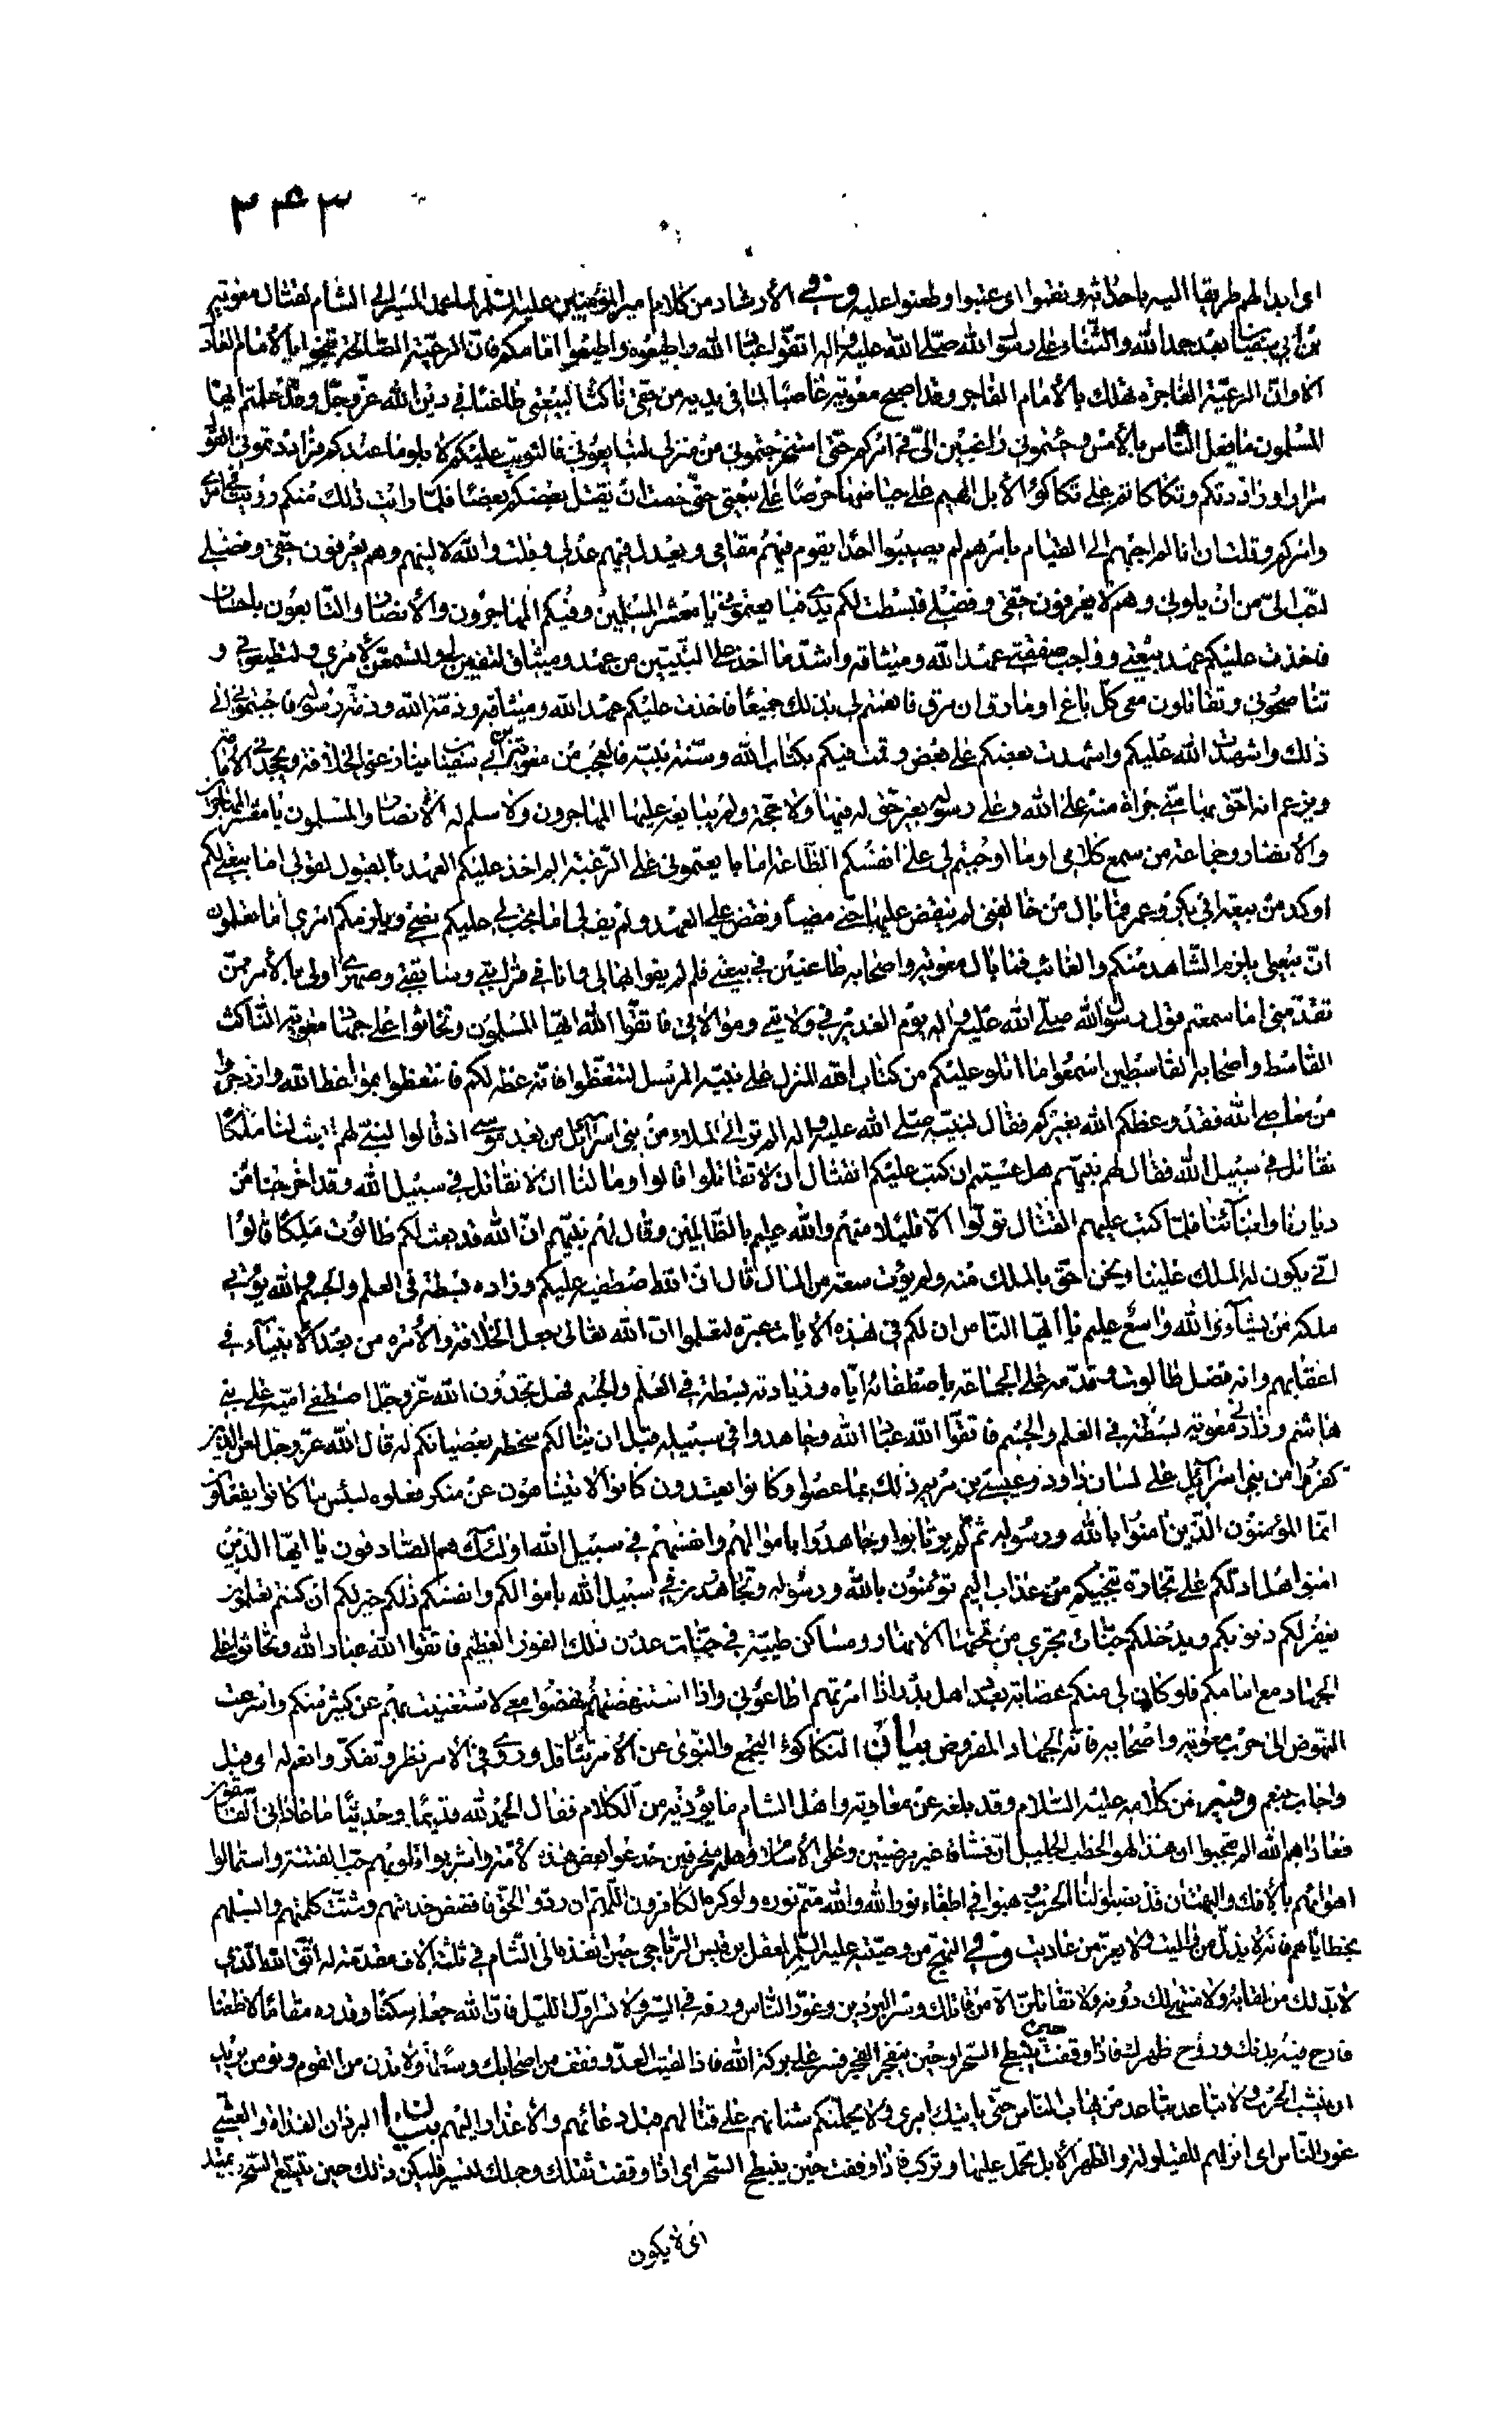 ۳۴۳
اى ابدا لهم طريقا اليه باحداثه ونقموا اى عتبوا وطعنوا عليه وفى الارشاد من كلام امير المؤمنين عليه السلم لما عمد المسير الى الشام لقتال معوية
بن ابى سفيان بعد حمد الله والثناء على رسول الله صلى الله عليه واله اتقوا عباد الله واطيعوه واطيعوا امامكم فان الرعية الصالحة تنجوا بالامام العادل
الا وان الرعية الفاجرة تهلك بالامام الفاجر وقد اصبح معوية غاصبا لما فى يديه من حقى ناكثا لبيعتى طاعنا فى دين الله عز وجل وقد علمتم ايها
المسلمون ما فعل الناس بالامس وجئتمونى راغبين الى فى امركم حتى استخرجتمونى من منزلى لتبايعونى فالتويت عليكم لابلو ما عندكم فراددتمونى القول
مرارا وراددتكم وتكاكاتم على تكاكؤ الابل الهيم على حياضها حرصا على بيعتى حتى خفت ان يقتل بعضكم بعضا فلما رايت ذلك منكم رويت فى امرى
وامركم وقلت ان انا لم اجبهم الى القيام بامرهم لم يصيبوا احدا يقوم فيهم مقامى ويعدل فيهم عدلى وقلت والله لالينهم وهم يعرفون حقى وفضلى
احب الى من ان يلونى وهم لا يعرفون حقى وفضلى فبسطت لكم يدى فبايعتمونى يا معشر المسلمين وفيكم المهاجرون والانصار والتابعون باحسان
فاخذت عليكم عهد بيعتى وواجب صفقتى عهد الله وميثاقه واشد ما اخذ على النبيين من عهد وميثاق لتفين لى ولتسمعن لامرى ولتطيعونى و
تناصحونى وتقاتلون معى كل باغ او مارق ان مرق فانعمتم لى بذلك جميعا فاخذت عليكم عهد الله وميثاقه وذمة الله وذمة رسوله فاجبتمونى الى
ذلك واشهدت الله عليكم واشهدت بعضكم على بعض وقمت فيكم بكتاب الله وسنة نبيه فالعجب من معوية بن ابى سفيان ينازعنى الخلافة ويجحدنى الامامة
ويزعم انه احق بها منى جراة منه على الله وعلى رسوله بغير حق له فيها ولا حجة ولم يبايعه عليها المهاجرون ولا سلم له الانصار والمسلمون يا معشر المهاجرين
والانصار وجماعة من سمع كلامى اوما اوجبتم لى على انفسكم الطاعة اما بايعتمونى على الرغبة الم اخذ عليكم العهد بالقبول لقولى اما بيعتى لكم
اوكد من بيعة ابى بكر وعمر فما بال من خالفنى لم ينقض عليهما حتى مضيا ونقض على العهد ولم يف لى اما يجب لى عليكم نصحى ويلزمكم امرى اما تعلمون
ان بيعتى يلزم الشاهد منكم والغائب فما بال معوية واصحابه طاعنين فى بيعتى فلم لم يفوا بها لى وانا فى قرابتى وسابقتى وصهرى اولى بالامر ممن
تقدمنى اما سمعتم قول رسول الله صلى الله عليه واله يوم الغدير فى ولايتى وموالاتى فاتقوا الله ايها المسلمون وتحاثوا على جهاد معوية الناكث
القاسط واصحابه القاسطين اسمعوا ما اتلو عليكم من كتاب الله المنزل على نبيه المرسل لتتعظوا فانه عظة لكم فانتعظوا بمواعظ الله وازدجروا
من معاصى الله فقد وعظكم الله بغيركم فقال لنبيه صلى الله عليه واله الم تر الى الملاء من بنى اسرائيل من بعد موسى اذ قالوا لنبى لهم ابعث لنا ملكا
نقاتل فى سبيل الله فقال لهم نبيهم هل عسيتم ان كتب عليكم القتال ان لا تقاتلوا قالوا وما لنا ان لا نقاتل فى سبيل الله وقد اخرجنا من
ديارنا وابنآئنا فلما كتب عليهم القتال تولوا الا قليلا منهم والله عليم بالظالمين وقال لهم نبيهم ان الله قد بعث لكم طالوت ملكا قالوا
انى يكون له الملك علينا ونحن احق بالملك منه ولم يؤت سعة من المال قال ان الله اصطفيه عليكم وزاده بسطة فى العلم والجسم والله يؤتى
ملكه من يشآء والله واسع عليم يا ايها الناس ان لكم فى هذه الايات عبرة لتعلموا ان الله تعالى جعل الخلافة والامرة من بعد الانبيآء فى
اعقابهم وانه فضل طالوت وقدمه على الجماعة باصطفائه اياه وزيادته بسطة فى العلم والجسم فهل تجدون الله عز وجل اصطفى امية على بنى
هاشم وزاد معوية بسطة فى العلم والجسم فاتقوا الله عباد الله وجاهدوا فى سبيله قبل ان ينالكم سخطه بعصيانكم له قال الله عز وجل لعن الذين
كفروا من بنى اسرآئيل على لسان داود وعيسى بن مريم ذلك بما عصوا وكانوا يعتدون كانوا لا يتناهون عن منكر فعلوه لبئس ما كانوا يفعلون
انما المؤمنون الذين امنوا بالله ورسوله ثم لم يرتابوا وجاهدوا باموالهم وانفسهم فى سبيل الله اولئك هم الصادقون يا ايها الذين
امنوا هل ادلكم على تجارة تنجيكم من عذاب اليم تؤمنون بالله ورسوله وتجاهدون فى سبيل الله باموالكم وانفسكم ذلكم خير لكم ان كنتم تعلمون
يغفر لكم ذنوبكم ويدخلكم جنات تجرى من تحتها الانهار ومساكن طيبة فى جنات عدن ذلك الفوز العظيم فاتقوا الله عباد الله وتحاثوا على
الجهاد مع امامكم فلو كان لى منكم عصابة بعدد اهل بدر اذا امرتهم اطاعونى واذا استنهضتهم نهضوا معى لاستغنيت بهم عن كثير منكم واسرعت
النهوض الى حرب معوية واصحابه فانه الجهاد المفروض بيان التكاكؤ التجمع والتوى عن الامر تثاقل وروى فى الامر نظر وتفكر وانعم له اى قبل
واجاب بنعم وفيه من كلامه عليه السلام وقد بلغه عن معاوية واهل الشام ما يؤذيه من الكلام فقال الحمد لله قديما وحديثا ما عادانى الفاسقون
فعاداهم الله الم تعجبوا ان هذا لهو الخطب الجليل ان فساقا غير مرضيين وعلى الاسلام واهله منحرفين خدعوا بعض هذه الامة واشربوا قلوبهم حب الفتنة واستمالوا
اهوائهم بالافك والبهتان قد نصبوا لنا الحرب وهبوا فى اطفاء نور الله والله متم نوره ولو كره الكافرون اللهم ان ردوا الحق فافضض خدمتهم وشتت كلمتهم وابسلهم
بخطاياهم فانه لا يذل من واليت ولا يعز من عاديت وفى النهج من وصيته عليه السلم لمعقل بن قيس الرياحى حين انفذه الى الشام فى ثلثة الاف مقدمة له اتق الله الذى
لا بد لك من لقائه ولا منتهى لك دونه ولا تقاتلن الا من قاتلك وسر البردين وغور الناس ورفه فى السير ولا تسر اول الليل فان الله جعله سكنا وقدره مقاما لا ظعنا
فارح فيه بدنك وروح ظهرك فاذا وقفت حين ينبطح السحر او حين ينفجر الفجر فسر على بركة الله فاذا لقيت العدو فقف من اصحابك وسطا ولا تدن من القوم دنو من يريد
ان ينشب الحرب ولا تباعد تباعد من يهاب الناس حتى ياتيك امرى ولا يحملنكم شنانهم على قتالهم قبل دعائهم والاعذار اليهم بيان البردان الغداة والعشى
غور الناس اى انزل بهم للقيلولة والظهر الابل تحمل عليها وتركب فاذا وقفت حين ينبطح السحر اى اذا وقفت ثقلك وجملك للسير فليكن ذلك حين ينبطح السحر يمتد
اى لا يكون